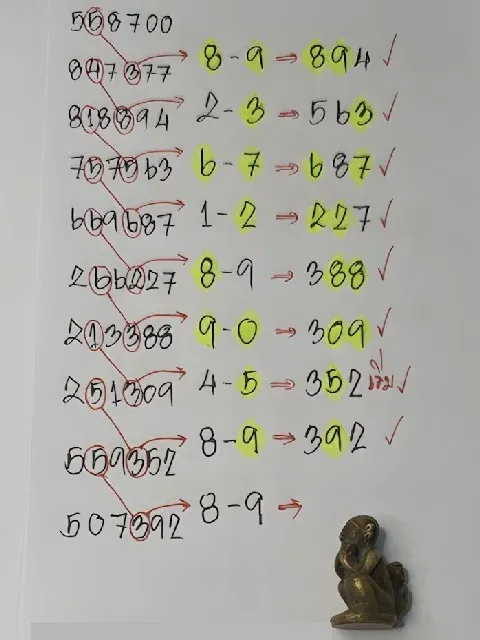 558700
847377 8-9 ⇒ 894 ✓
818894 2-3 ⇒ 563 ✓
757563 6-7 ⇒ 687 ✓
669687 1-2 ⇒ 227 ✓
266227 8-9 ⇒ 388 ✓
213388 9-0 ⇒ 309 ✓
251309 4-5 ⇒ 352 เริ่ม ✓
559352 8-9 ⇒ 392 ✓
507392 8-9 ⇒